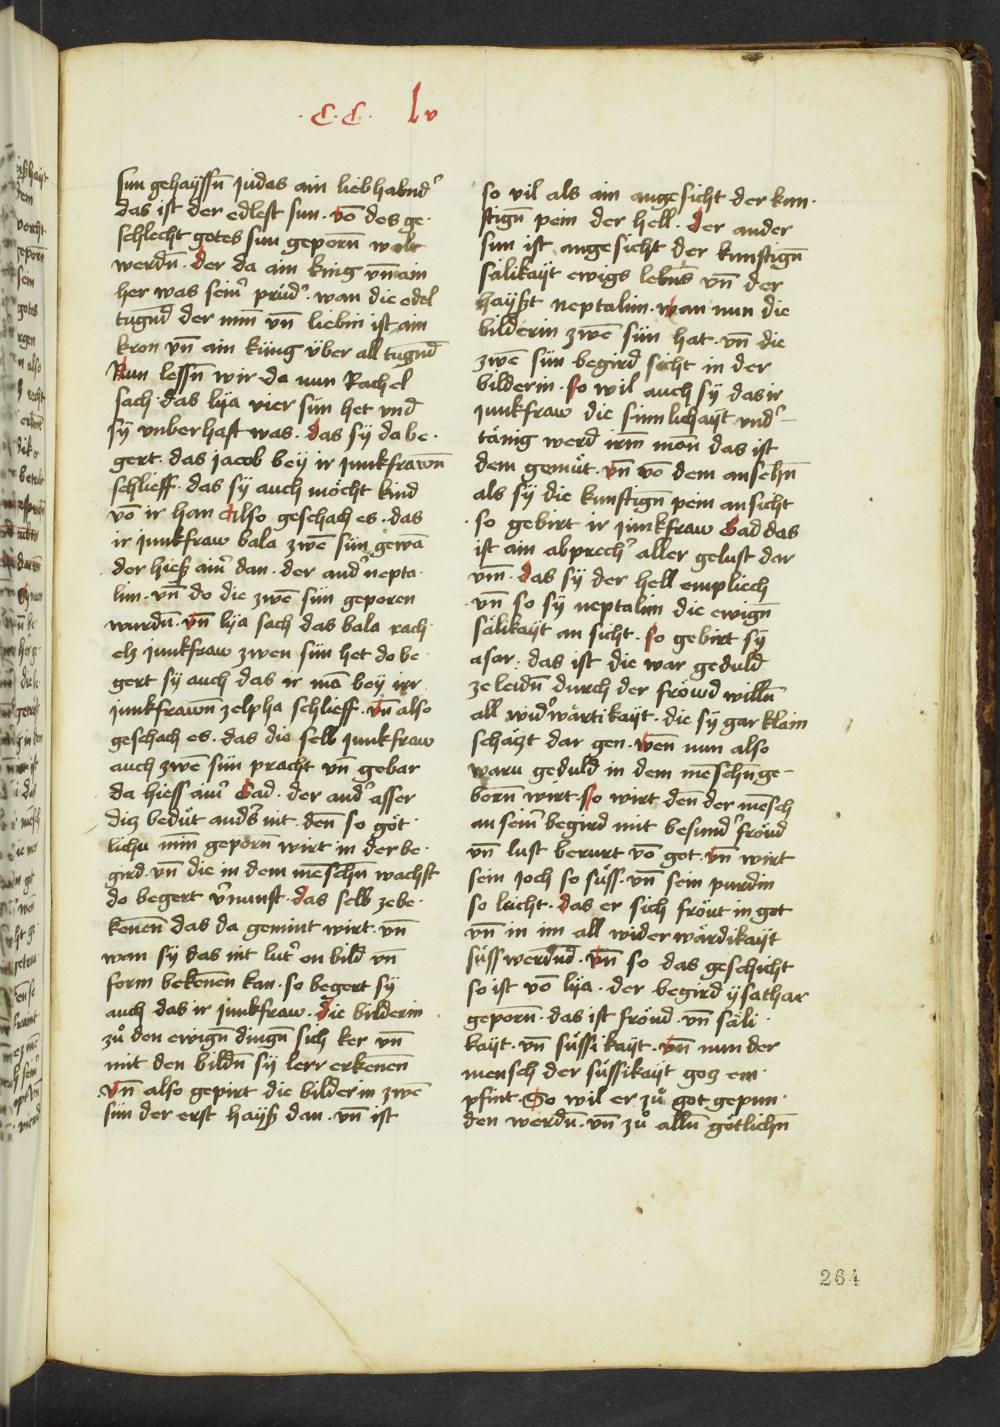 .C.C. lv
sun gehayssn̄ judas ain liebhabnd'
das ist der edlest sun. vō des ge.
schlecht gotes sun geporn̄ wolt
werdn̄. der da ain king vn̄ ain
her was sein' prüd'. wan die edel
tugn̄d der min̄ vn̄ liebin ist ain
kron vn̄ ain küng über all tugn̄d
Nun lessn̄ wir da nun Rachel
sach. das lya vier sün het vnd
sy vnberhaft was. das sy da be.
gert. das jacob bey ir junkfrawn̄
schlieff. das sy auch möcht kind
vō ir han also geschach es. das
ir junkfraw bala zwē sün gewā
der hiess ain' dan. der and' nepta.
lim. vn̄ do die zwē sün geporen
wurdn̄. vn̄ lya sach das bala rach
elz junkfraw zwen sün het do be.
gert sy auch das ir mā bey irr
junkfrawn̄ zelpha schlieff. vn̄ also
geschach es. das die selb junkfraw
auch zwē sün pracht vn̄ gebar
da hiess ain' Gad. der and' asser
diz bedüt and's nit. den̄ so göt.
lichu min̄ geporn̄ wirt in der be.
gird. vn̄ die in dem mēschn̄ wachst
do begert v'nunft. das selb zebe.
kenen̄ das da gemint wirt. vn̄
wan sy das nit lut' on bild vn̄
form bekenen̄ kan. so begert sy
auch das ir junkfraw. die bilderin
zů den ewign̄ dingn̄ sich ker vn̄
mit den bildn̄ sy lerr erkenen̄
vn̄ also gepirt die bilderin zwē
sün der erst hayß dan. vn̄ ist
so vil als ain angesicht der kun.
ftign̄ pein der hell. der ander
sun ist angesicht der kunftign̄
sälikayt ewigs lebn̄s vn̄ der
hayßt neptalim. wan nun die
bilderin zwē sün hat. vn̄ die
zwē sün begird sicht in der
bilderin. so wil auch sy das ir
junkfraw die sinnlichayt vnd'
tänig werd irm mon̄ das ist
dem gemüt. vn̄ vō dem ansehn̄
als sy die kunftign̄ pein ansicht
. so gebirt ir junkfraw Gad das
ist ain abprech' aller gelust dar
vm̄. das sy der hell empliech
vn̄ so sy neptalim die ewign̄
sälikayt an sicht. so gebirt sy
asar. das ist die war geduld
ze leidn̄ durch der fröwd willn̄
all wid'wärtikayt. die sy gar klain
schätzt dar gen. wen̄ nun also
waru geduld in dem mēschn̄ ge-
born̄ wirt. so wirt den̄ der mēsch
an sein' begird mit besund' fröud
vn̄ lust berurt vō got. vn̄ wirt
sein joch so süss. vn̄ sein purdin
so leicht. das er sich fröut in got
vn̄ in im all wider wärdikayt
süss werdn̄d. vn̄ so das geschicht
so ist vō lya. der begird ysathar
geporn̄. das ist fröud. vn̄ säli.
kayt. vn̄ süssikayt. vn̄ nun der
mensch der süssikayt gotz em.
pfint. So wil er zů got gepun.
den werdn̄. vn̄ zů alln̄ götlichn̄
264